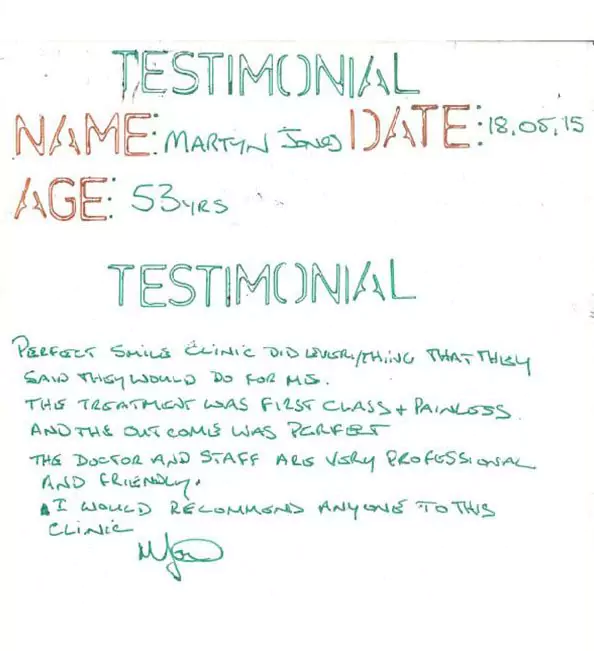 TESTIMONIAL
NAME: MARTYN JONES DATE: 18.05.15
AGE: 53YRS
TESTIMONIAL
PERFECT SMILE CLINIC DID EVERYTHING THAT THEY
SAID THEY WOULD DO FOR ME.
THE TREATMENT WAS FIRST CLASS + PAINLESS
AND THE OUTCOME WAS PERFECT
THE DOCTOR AND STAFF ARE VERY PROFESSIONAL
AND FRIENDLY.
I WOULD RECOMMEND ANYONE TO THIS
CLINIC